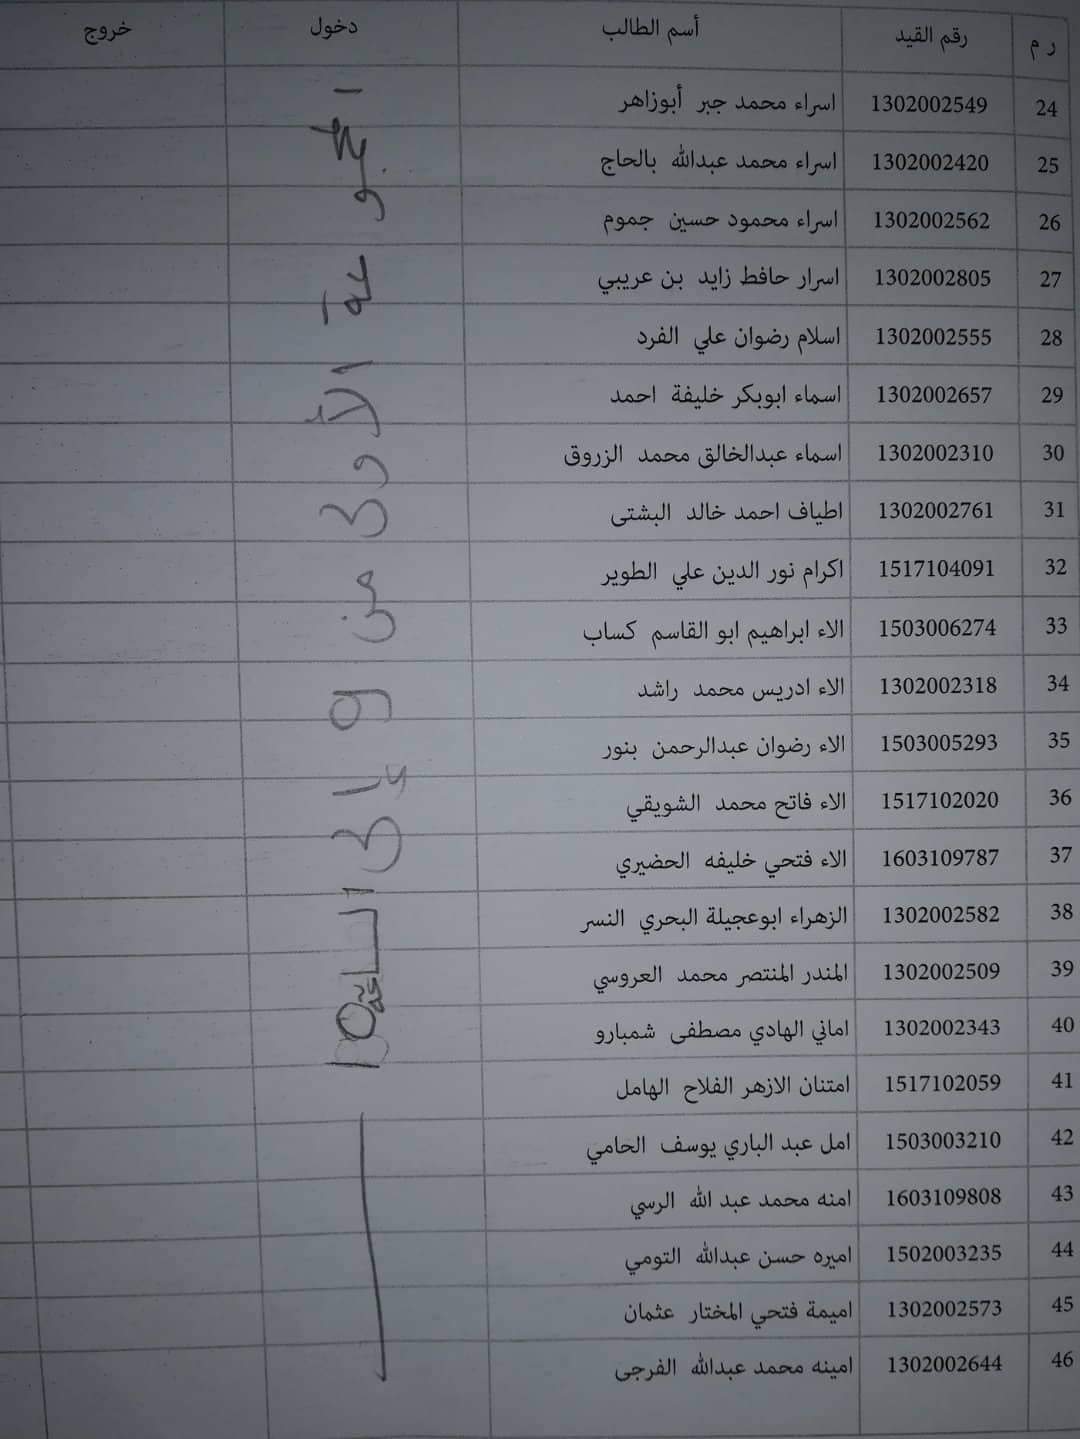 ر م رقم القيد أسم الطالب دخول خروج
24 1302002549 اسراء محمد جبر أبوزاهر
25 1302002420 اسراء محمد عبدالله بالحاج
26 1302002562 اسراء محمود حسين جموم
27 1302002805 اسرار حافظ زايد بن عريبي
28 1302002555 اسلام رضوان علي الفرد
29 1302002657 اسماء ابوبكر خليفة احمد
30 1302002310 اسماء عبدالخالق محمد الزروق
31 1302002761 اطياف احمد خالد البشتى
32 1517104091 اكرام نور الدين علي الطوير
33 1503006274 الاء ابراهيم ابو القاسم كساب
34 1302002318 الاء ادريس محمد راشد
35 1503005293 الاء رضوان عبدالرحمن بنور
36 1517102020 الاء فاتح محمد الشويقي
37 1603109787 الاء فتحي خليفه الحضيري
38 1302002582 الزهراء ابوعجيلة البحري النسر
39 1302002509 المندر المنتصر محمد العروسي
40 1302002343 اماني الهادي مصطفى شمبارو
41 1517102059 امتنان الازهر الفلاح الهامل
42 1503003210 امل عبد الباري يوسف الحامي
43 1603109808 امنه محمد عبد الله الرسي
44 1502003235 اميره حسن عبدالله التومي
45 1302002573 اميمة فتحي المختار عثمان
46 1302002644 امينه محمد عبدالله الفرجى
الأولى من 9 إلى الساعة